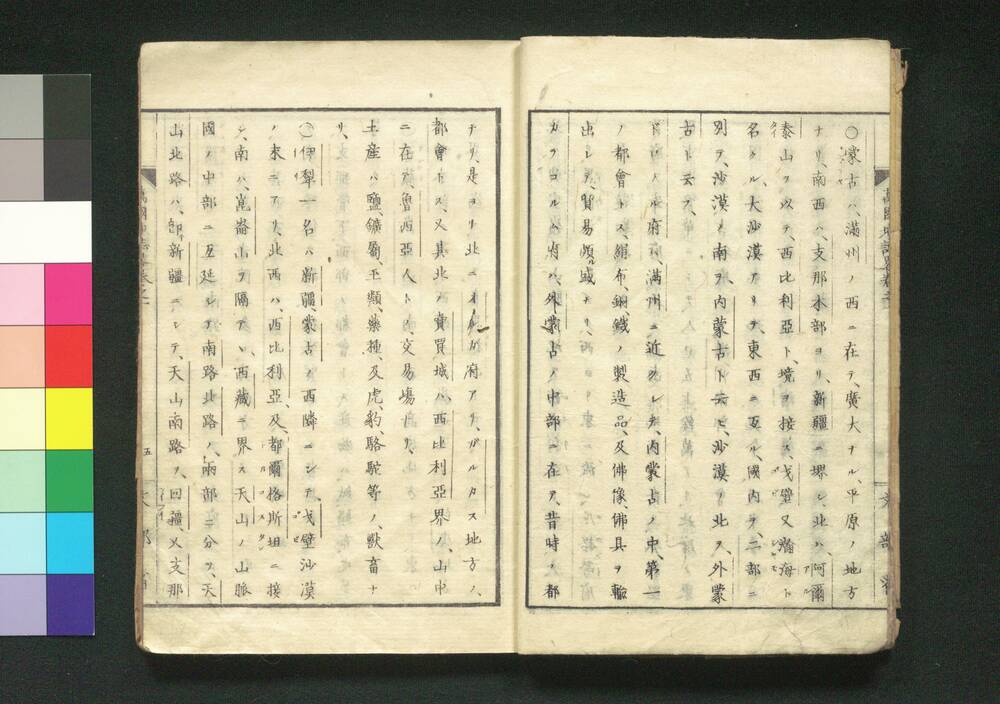 ○蒙古ハ、滿州ノ西ニ在テ、廣大ナル、平原ノ地方
ナリ、南西ハ、支那本部ヨリ、新疆ニ堺シ、北ハ、阿爾
泰山ヲ以テ、西比利亞ト、境ヲ接ス、戈壁又瀚海ト
名クル、大沙漠アリテ、東西ニ亙ル、國内ヲ、二部ニ
別テ、沙漠ノ南ヲ、内蒙古ト云ヒ、沙漠ノ北ヲ、外蒙
古ト云フ、
府、滿州ニ近クシテ、内蒙古ノ中、第一
ノ都會トス、絹布、銅、鐵ノ製造品、及佛像、佛具ヲ輸
出シ、貿易頗ル盛ナリ、
府ハ、外蒙古ノ中部ニ在テ、昔時ノ都
ナリ、是ヨリ北ニ府アリ、地方ノ、
都會トス、又其北ニ、賣買城ハ、西比利亞界ノ、山中
ニ在テ、魯西亞人ト、交易塲ナリ、
土産ハ、鹽、鑛屬、玉類、藥種、及虎、豹、駱駝等ノ、獸畜ナ
リ、
○伊犁一名ハ新疆、蒙古ノ西隣ニシテ、戈壁沙漠
ノ末ニアリ、北西ハ、西比利亞、及都爾格斯坦ニ接
シ、南ハ、崑崙山ヲ隔テヽ、西藏ニ界ス、天山ノ山脈
國ノ中部ニ互延シテ、南路北路ノ、兩部ニ分ツ、天
山北路ハ、即新疆ニシテ、天山南路ヲ、回疆又支那
五